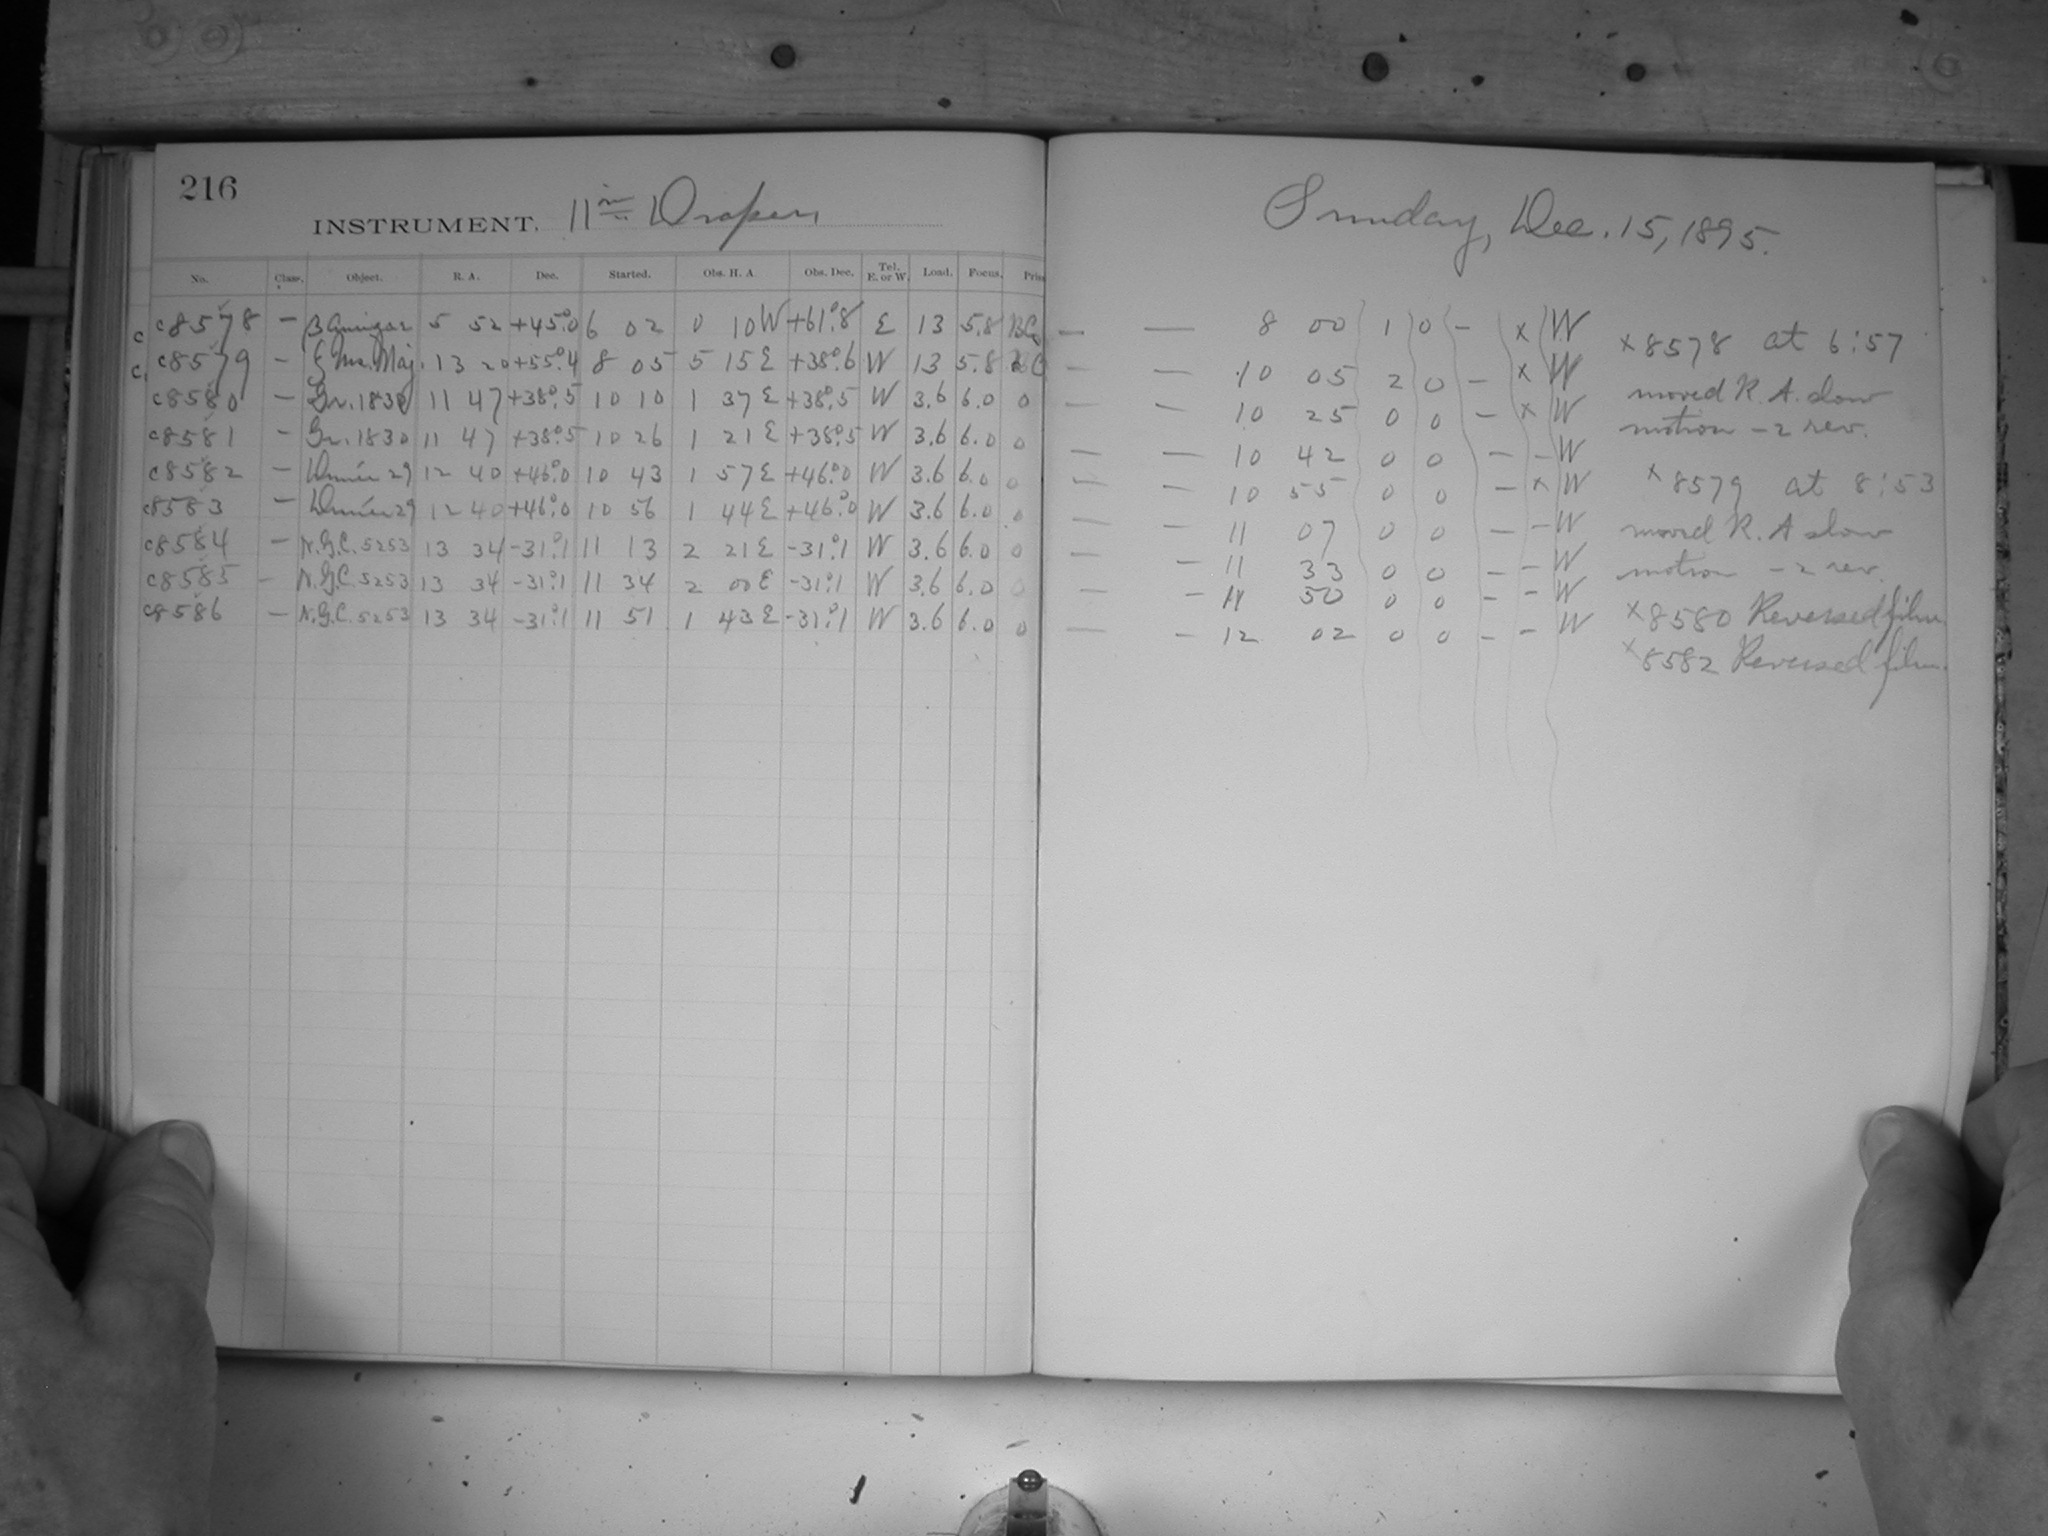 216
INSTRUMENT. 11 in Draper,
Sunday, Dec. 15, 1895.
No. Class. Object. R. A. Dec. Started. Obs. H. A. Obs. Dec. Tel. E. or W. Load. Focus.
c c8578 – β Aurigae 5 52 +45°.0 6 02 0 10W +61°.8 E 13 5.8 — — 8 00 1 0 – x W
c c8579 – ζ Urs. Maj. 13 20 +55°.4 8 05 5 15E +38°.6 W 13 5.8 — — 10 05 2 0 – x W
c8580 – Gr. 1830 11 47 +38°.5 10 10 1 37E +38°.5 W 3.6 6.0 0 — — 10 25 0 0 – x W
c8581 – Gr. 1830 11 47 +38°.5 10 26 1 21E +38°.5 W 3.6 6.0 0 — — 10 42 0 0 – – W
c8582 – Dunér 29 12 40 +46°.0 10 43 1 57E +46°.0 W 3.6 6.0 0 — — 10 55 0 0 – x W
c8583 – Dunér 29 12 40 +46°.0 10 56 1 44E +46°.0 W 3.6 6.0 0 — — 11 07 0 0 – – W
c8584 – N.G.C. 5253 13 34 –31°.1 11 13 2 21E –31°.1 W 3.6 6.0 0 — – 11 33 0 0 – – W
c8585 – N.G.C. 5253 13 34 –31°.1 11 34 2 00E –31°.1 W 3.6 6.0 0 — – 11 50 0 0 – – W
c8586 – N.G.C. 5253 13 34 –31°.1 11 51 1 43E –31°.1 W 3.6 6.0 0 — – 12 02 0 0 – – W
x 8578 at 6:57
moved R. A. slow
motion –2 rev.
x 8579 at 8:53
moved R. A slow
motion –2 rev.
x 8580 Reversed film.
x 8582 Reversed film.